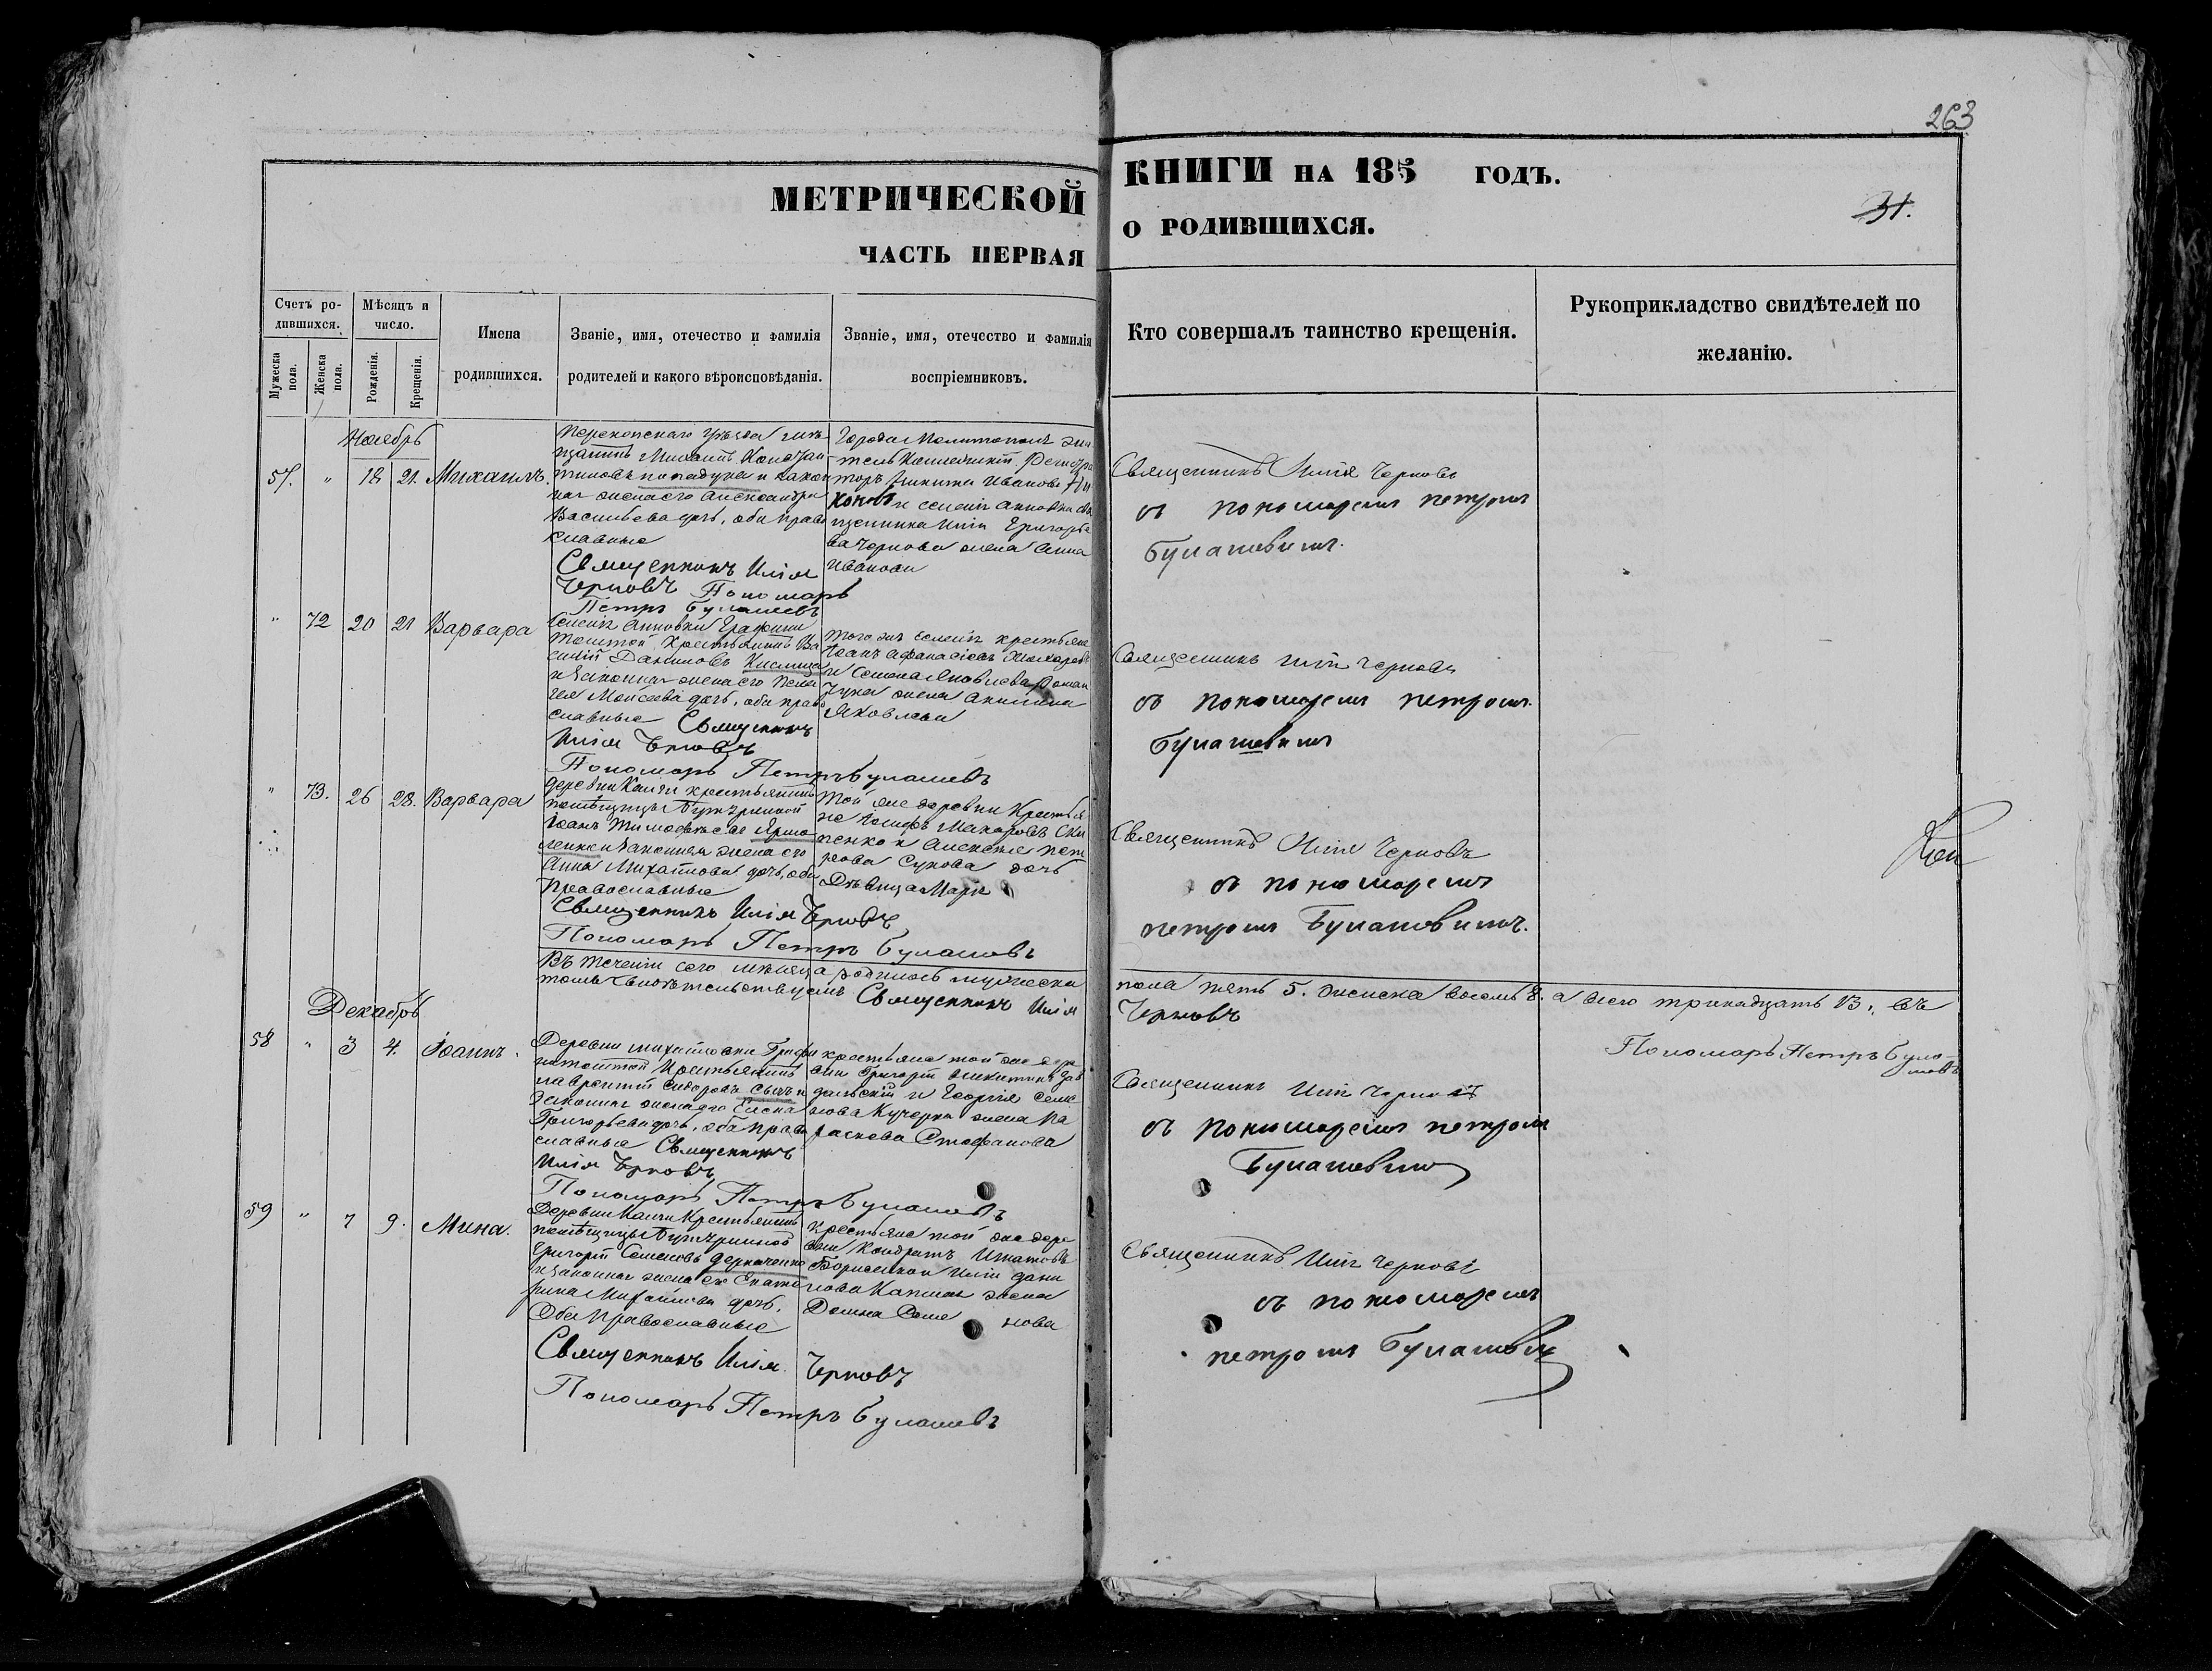 263
МЕТРИЧЕСКОЙ
КНИГИ НА 185 ГОДЪ.
31.
ЧАСТЬ ПЕРВАЯ
О РОДИВШИХСЯ.
Счетъ ро-
дившихся.
Мужеска пола.
Женска пола.
Мѣсяцъ и
число.
Рожденія.
Крещенія.
Имена
родившихся.
Званіе, имя, отечество и фамилія
родителей и какого вѣроисповѣданія.
Званіе, имя, отечество и фамилія
воспріемниковъ.
Кто совершалъ таинство крещенія.
Рукоприкладство свидѣтелей по
желанію.
Ноябрь
57. " 18 21. Михаилъ.
Перекопскаго уѣзда
Михаилъ
жена его Александра
Васильева дочь, оба право
славные
Священникъ Илія
Чернов Пономарь
Петръ Булашевъ
Города Мелитополя жи
тель Коллежскій Регистра
торъ Никита Ивановъ
щенника Иліи Григорье
ва Чернова жена Анна
Иванова
Священникъ Илія Черновъ
съ пономаремъ петромъ
Булашевымъ.
" 72 20 21 Варвара
Толстой крестьянинъ Ва
силій Даниловъ Кислица
и законная жена его Пела
гея Моисеева дочь, оба право
славные Священникъ
Илія Черновъ
Пономарь Петръ Булашевъ
того же селенія крестьяне
Іоанъ Афанасіевъ
и Семена Яковлева Роман
чука жена Акилина
Яковлева
Священникъ Илія Черновъ
съ пономаремъ петромъ
Булашевымъ
" 73. 26 28. Варвара
деревни крестьянинъ
помѣщицы
Іоанъ Тимофѣевъ Ярмо
ленко и законная жена его
Анна Михайлова дочь, оба
православные
Священникъ Илія Черновъ
Пономарь Петръ Булашевъ
той же деревни Крестья
не Іосифъ Макаровъ
пенко и Алексѣя пет
рова Сукова дочь
Дѣвица Марія
Священникъ Илія Черновъ
съ пономаремъ
петромъ Булашевымъ.
Въ теченіи сего мѣсяца родилось мужеска
пола пять 5. женска восемь 8. а всего тринадцать 13. въ
томъ свидѣтельствуемъ Священникъ Илія
Черновъ
Пономарь Петръ Була-
шевъ
Декабрь
58 " 3 4. Іоаннъ.
Деревни Михайловки Графи
ни толстой Крестьянинъ
Лаврентій Сидоровъ
законная жена его Елена
Григорьева дочь, оба право
славные Священникъ
Илія Черновъ
Пономарь Петръ Булашевъ
крестьяне той же дере
вни Григорій Никитинъ Зав
дальскій и Георгія Семе
нова Кучерки жена Па
раскева Стефанова
Священникъ Илія Черновъ
съ пономаремъ петромъ
Булашевымъ
59 " 7 9. Мина.
Деревни Крестьянинъ
помѣщицы
Григорій Семеновъ Деркаченко
и законная жена его Екате
рина Михайлова дочь.
Оба православные
Священникъ Илія Черновъ
Пономарь Петръ Булашевъ
Крестьяне той же дере
вни Кондратъ Игнатовъ
Борисенко и Иліи Дани
лова жена
Домна Семенова
Священникъ Илія Черновъ
съ пономаремъ
петромъ Булашевым